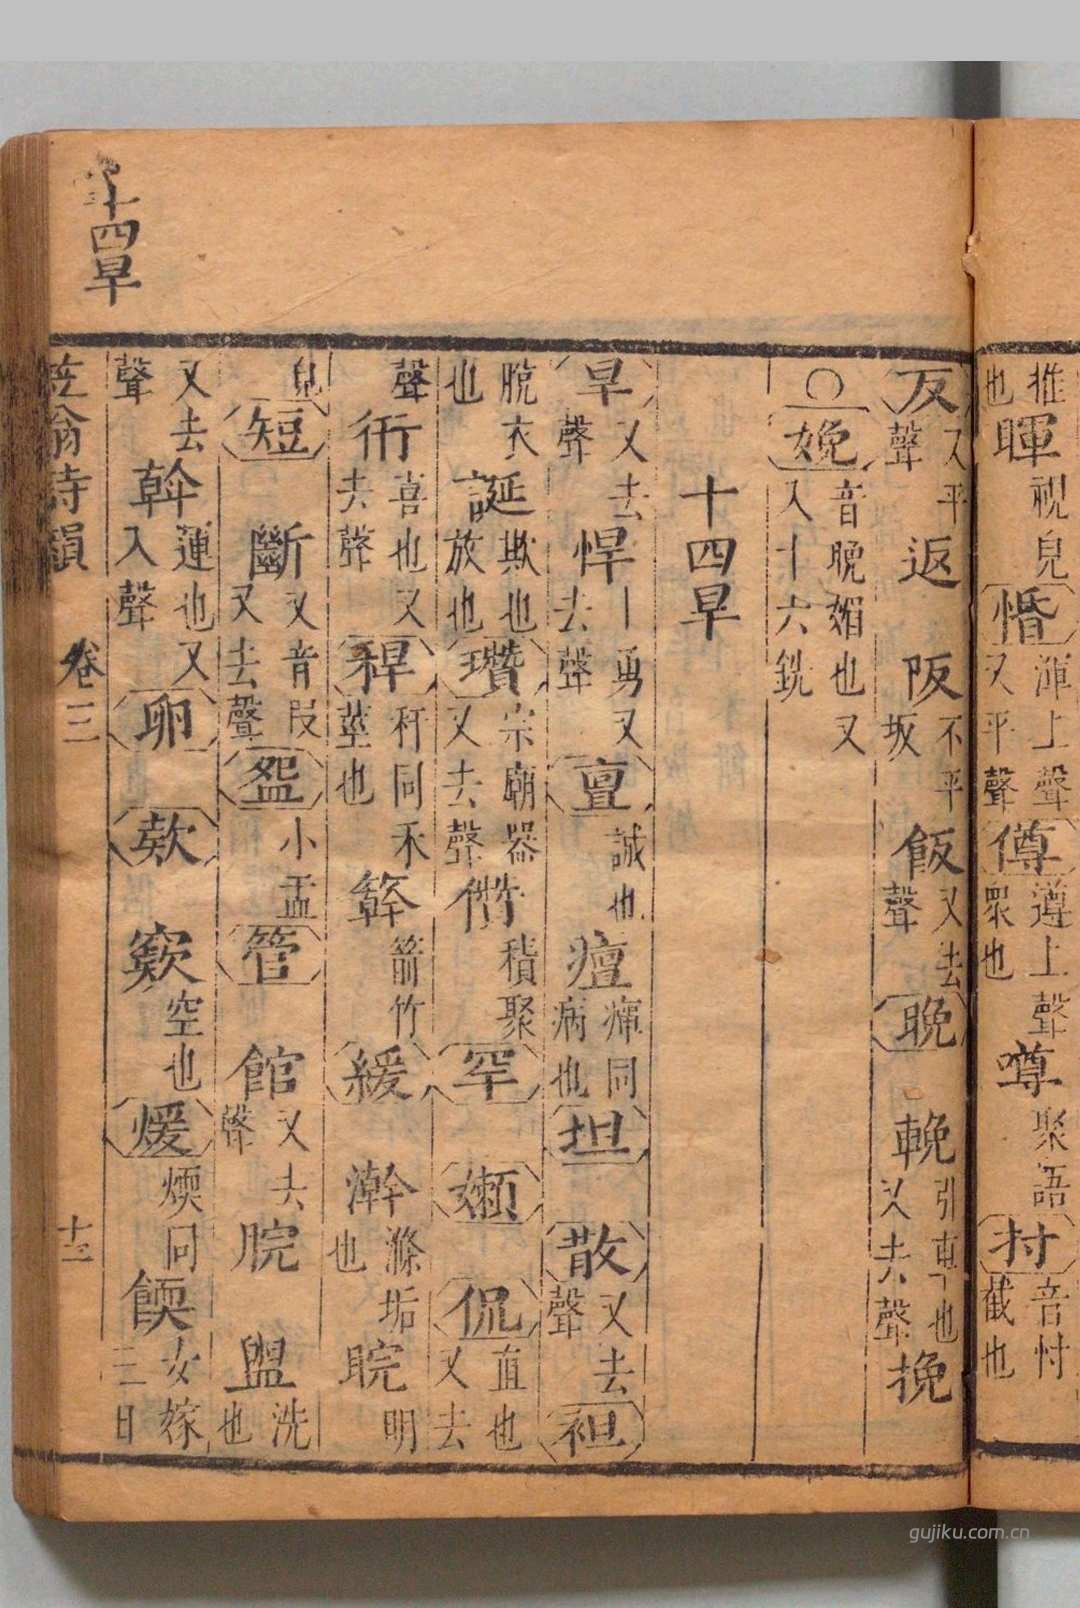 推也暉視皃惛渾上聲又平聲僔遵上聲眾也噂聚語忖音忖截也
反又平聲返阪不平坂飯又去聲晚輓引車也又去聲挽
○娩音晚媚也又入十六銑
十四旱
旱又去聲悍丨勇又去聲亶誠也癉痹同病也坦散又去聲袒
脫衣也誕欺也放也瓚宗廟器又去聲儹積聚罕嬾侃直也又去
聲衎喜也又去聲稈秆同禾莖也簳箭竹緩澣滌垢也睆明
皃短斷又音段又去聲盌小盂管館又去聲脘盥洗也
又去聲斡運也又入聲卵款窾空也煖煗同餪女嫁三日
笠翁詩韻 卷三 十三
十四旱
gujiku.com.cn